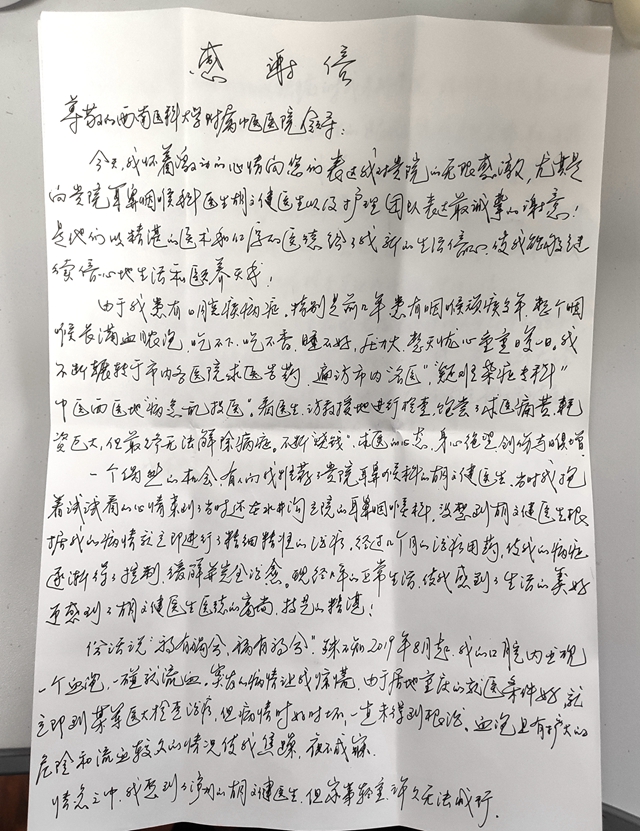 感谢信
尊敬的西南医科大学附属中医医院领导:
今天,我怀着激动的心情向您们表达我对贵院的无限感激,尤其是
向贵院耳鼻咽喉科医生胡文健医生以及护理团队表达最诚挚的谢意!
是他们以精湛的医术和仁厚的医德给了我新的生活信心,使我能够继
续信心地生活和医养天年!
由于我患有口腔疾病症,特别是前几年患有咽喉顽疾多年,整个咽
喉长满血脓泡,吃不下,吃不香,睡不好,压力大,整天忧心重重日复一日。我
不断辗转于市内各医院求医告药,遍访市内"名医","疑难杂症专科"
中医西医地"病急乱投医"。看医生,访教授地进行检查,饱尝了求医痛苦,耗
资巨大,但最终无法解除病症。不断"烧钱",求医的心态,身心绝望创伤与日俱增
一个偶然的机会,有人向我推荐了贵院耳鼻喉科的胡文健医生,当时我抱
着试试看的心情来到了当时还在水井沟立院的耳鼻咽喉科,没想到胡文健医生根
据我的病情就立即进行了精细精准的治疗,经过几个月的治疗用药,使我的病症
逐渐得了控制,缓解并完全治愈。既经几年的正常生活,使我感到了生活的美好
更感到了胡文健医生医德的高尚,技艺的精湛!
俗话说"祸有福兮,福有祸兮"。殊不知2019年8月起,我的口腔内出现
一个血泡,一碰就流血。突发的病情让我惊慌,由于居地重庆的就医条件好,就
立即到某军医大检查治疗,但病情时好时坏,一直未得到根治。血泡且有扩大的
危险和流血较久的情况使我焦躁,夜不成寐.
情急之中,我想到了泸州的胡文健医生,但家事轻重,许久无法成行.